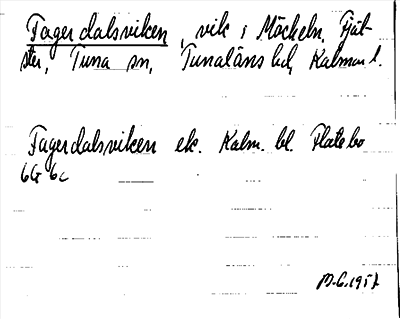 Fagerdalsviken, vik i Möckeln, Fjäl-
ster, Tuna sn, Tunaläns hd, Kalmar l.
Fagerdalsviken ek. Kalm. bl. Flatebo
6G 6c
M.G. 1957